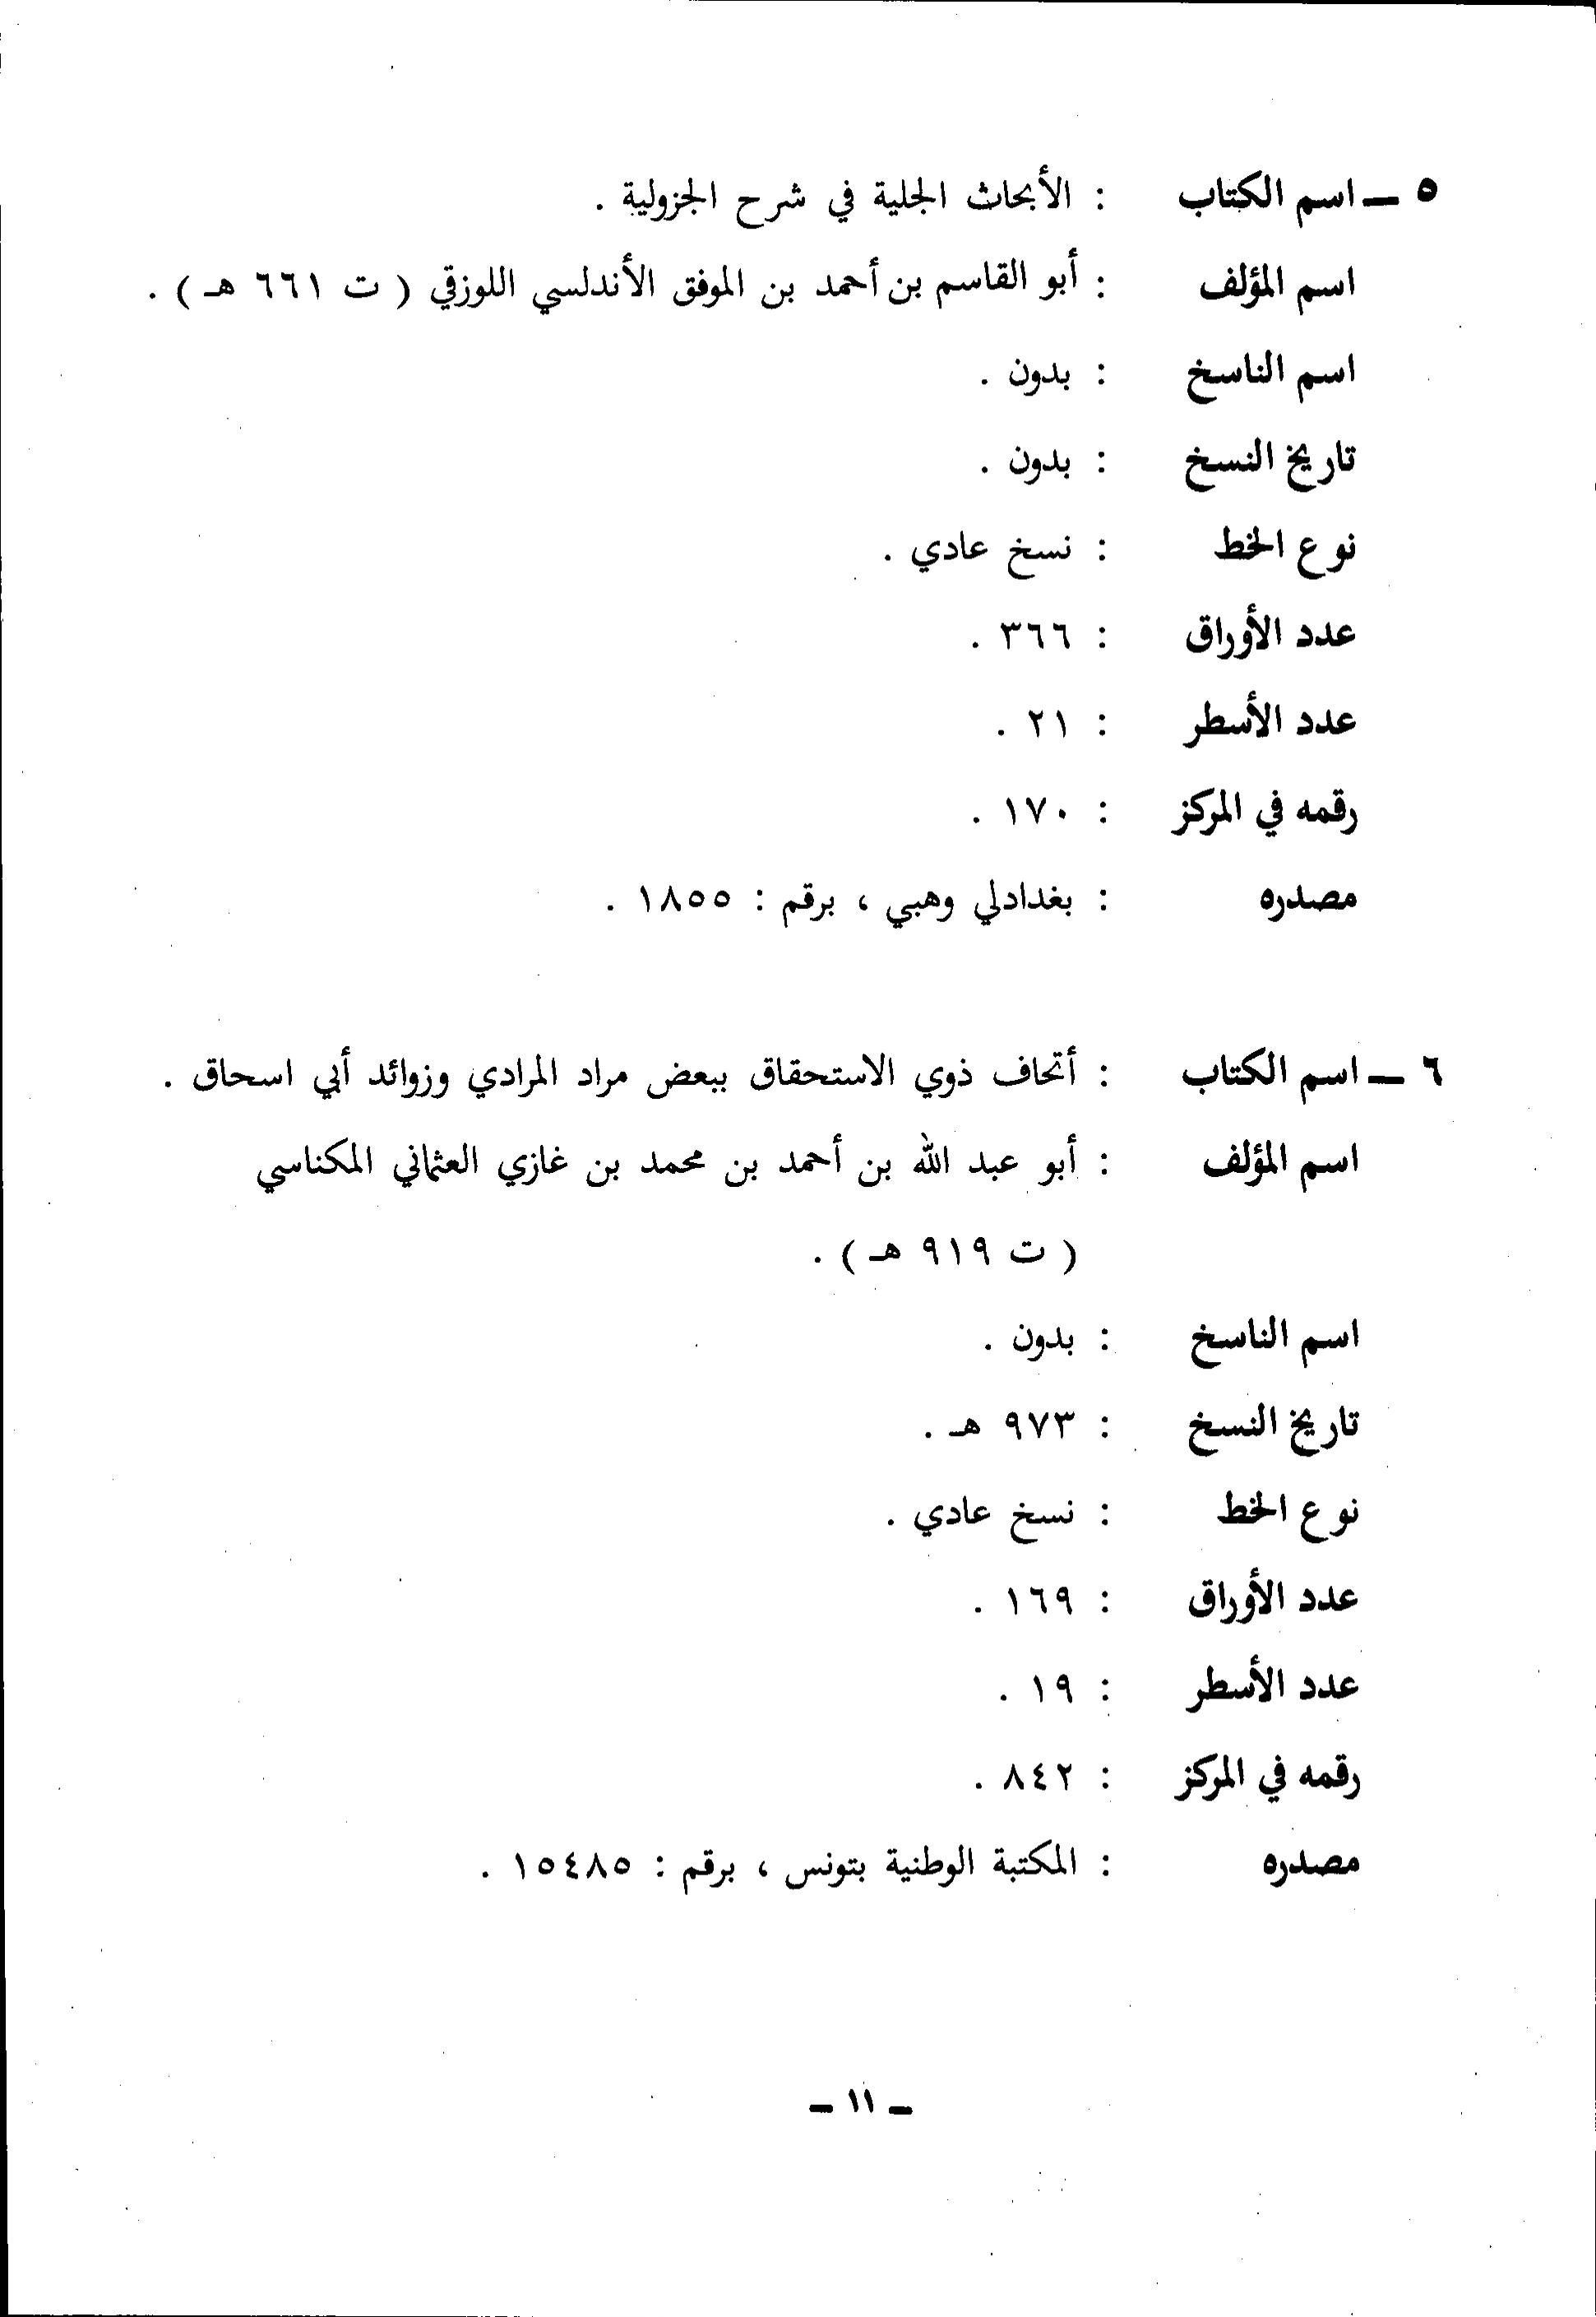 ٥ ــ اسم الكتاب : الأبحاث الجلية في شرح الجزولية .
اسم المؤلف : أبو القاسم بن أحمد بن الموفق الأندلسي اللوزقي ( ت ٦٦١ هـ ) .
اسم الناسخ : بدون .
تاريخ النسخ : بدون .
نوع الخط : نسخ عادي .
عدد الأوراق : ٣٦٦ .
عدد الأسطر : ٢١ .
رقمه في المركز : ١٧٠ .
مصدره : بغدادلي وهبي ، برقم : ١٨٥٥ .
٦ ــ اسم الكتاب : أتحاف ذوي الاستحقاق ببعض مراد المرادي وزوائد أبي اسحاق .
اسم المؤلف : أبو عبد الله بن أحمد بن محمد بن غازي العثماني المكناسي
( ت ٩١٩ هـ ) .
اسم الناسخ : بدون .
تاريخ النسخ : ٩٧٣ هـ .
نوع الخط : نسخ عادي .
عدد الأوراق : ١٦٩ .
عدد الأسطر : ١٩ .
رقمه في المركز : ٨٤٢ .
مصدره : المكتبة الوطنية بتونس ، برقم : ١٥٤٨٥ .
ـ ١١ ـ